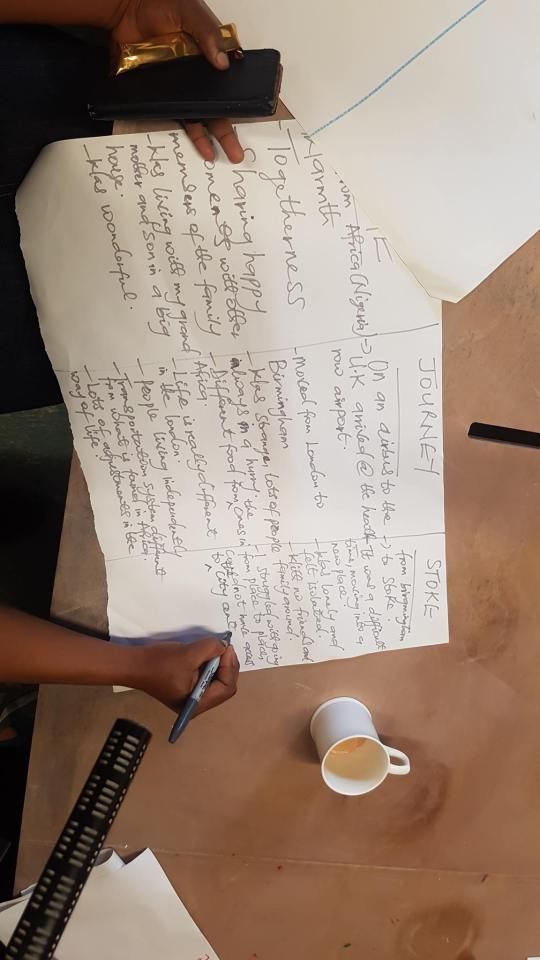 From Africa (Nigeria) →
Warmth
- Togetherness
Sharing happy
moments with other
members of the family
- Was living with my grand
mother and son in a big
house.
- Was woonderful.
JOURNEY
On an airbus to the →
U.K arrived @ the heath
row airport.
- Moved from London to
Birmingham
- Was strange, lots of people
always in a hurry.
- Different food from the Ones in
Africa
- Life is really different
in the London.
- People living independently
- Transportation system different
from what is found in Africa.
- Lots of adjustments in the
way of life.
STOKE
from birmingham
to Stoke.
It was a difficult
time, moving into a
new place.
- Was lonely and
felt isolated.
- With no friends and
family around.
- Struggled with going
from place to place,
not have access
to City cent